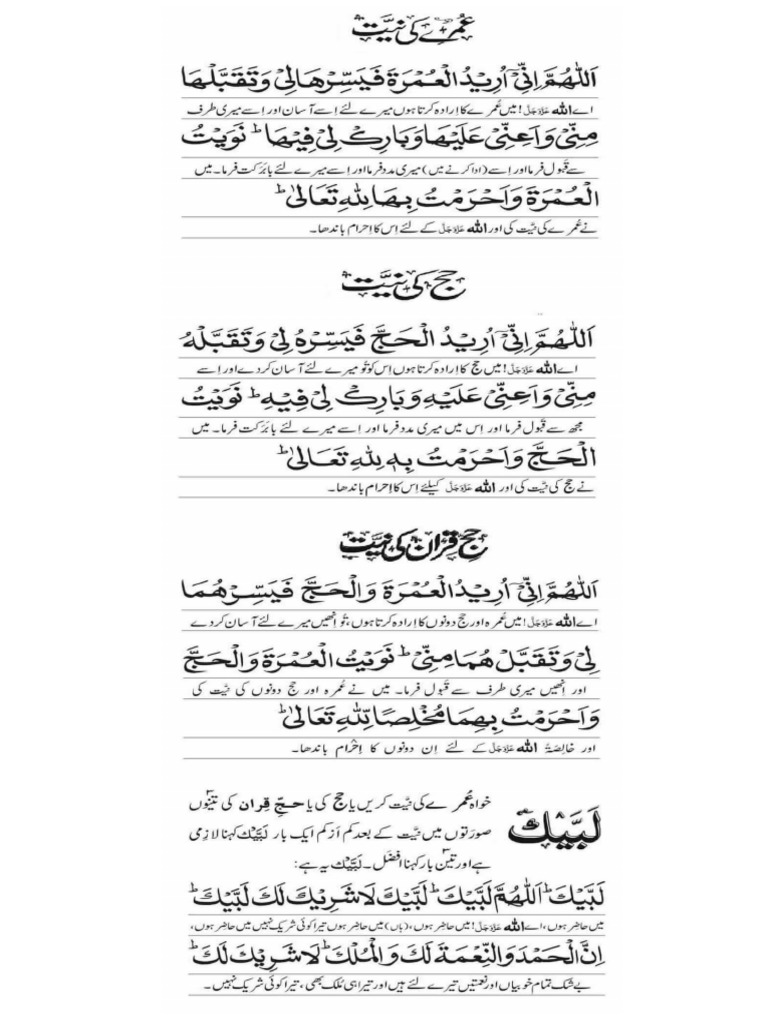 عُمرے کی نیَّت
اَللّٰهُمَّ اِنِّیْۤ اُرِیْدُ الْعُمْرَةَ فَیَسِّرْهَا لِیْ وَ تَقَبَّلْهَا
اے اللّٰہ عَزَّوَجَلَّ! میں عُمرے کا اِرادہ کرتا ہوں میرے لئے اِسے آسان اور اِسے میری طرف
مِنِّیْ وَ اَعِنِّیْ عَلَیْهَا وَ بَارِكْ لِیْ فِیْهَا ؕ نَوَیْتُ
سے قَبول فرما اور اِسے (ادا کرنے میں) میری مدد فرما اور اِسے میرے لئے بابَرَکت فرما۔ میں
الْعُمْرَةَ وَ اَحْرَمْتُ بِهَا لِلّٰهِ تَعَالٰی ؕ
نے عُمرے کی نیَّت کی اور اللّٰہ عَزَّوَجَلَّ کے لئے اِس کا اِحرام باندھا۔
حج کی نیَّت
اَللّٰهُمَّ اِنِّیْۤ اُرِیْدُ الْحَجَّ فَیَسِّرْهُ لِیْ وَ تَقَبَّلْهُ
اے اللّٰہ عَزَّوَجَلَّ! میں حج کا اِرادہ کرتا ہوں اِس کو تُو میرے لئے آسان کر دے اور اِسے
مِنِّیْ وَ اَعِنِّیْ عَلَیْهِ وَ بَارِكْ لِیْ فِیْهِ ؕ نَوَیْتُ
مجھ سے قَبول فرما اور اِس میں میری مدد فرما اور اِسے میرے لئے بابَرَکت فرما۔ میں
الْحَجَّ وَ اَحْرَمْتُ بِهٖ لِلّٰهِ تَعَالٰی ؕ
نے حج کی نیَّت کی اور اللّٰہ عَزَّوَجَلَّ کیلئے اِس کا اِحرام باندھا۔
حجِ قِران کی نیَّت
اَللّٰهُمَّ اِنِّیْۤ اُرِیْدُ الْعُمْرَةَ وَ الْحَجَّ فَیَسِّرْهُمَا
اے اللّٰہ عَزَّوَجَلَّ! میں عُمرہ اور حج دونوں کا اِرادہ کرتا ہوں، تُو اِنھیں میرے لئے آسان کر دے
لِیْ وَ تَقَبَّلْهُمَا مِنِّیْ ؕ نَوَیْتُ الْعُمْرَةَ وَ الْحَجَّ
اور اِنھیں میری طرف سے قَبول فرما۔ میں نے عُمرہ اور حج دونوں کی نیَّت کی
وَ اَحْرَمْتُ بِهِمَا مُخْلِصًا لِّلّٰهِ تَعَالٰی ؕ
اور خالِصَۃً اللّٰہ عَزَّوَجَلَّ کے لئے اِن دونوں کا اِحْرام باندھا۔
لَبَّیْكَ
خواہ عُمرے کی نیَّت کریں یا حج کی یا حجِّ قِران کی تینوں
صورَتوں میں نیَّت کے بعد کم از کم ایک بار لَبَّیْكَ کہنا لازِمی
ہے اور تین بار کہنا افضَل۔ لَبَّیْكَ یہ ہے:
لَبَّیْكَ ؕ اَللّٰهُمَّ لَبَّیْكَ ؕ لَبَّیْكَ لَا شَرِیْكَ لَكَ لَبَّیْكَ ؕ
میں حاضِر ہوں، اے اللّٰہ عَزَّوَجَلَّ! میں حاضِر ہوں، (ہاں) میں حاضِر ہوں تیرا کوئی شریک نہیں میں حاضِر ہوں،
اِنَّ الْحَمْدَ وَ النِّعْمَةَ لَكَ وَ الْمُلْكَ ؕ لَا شَرِیْكَ لَكَ ؕ
بے شک تمام خوبیاں اور نعمتیں تیرے لئے ہیں اور تیرا ہی مُلک بھی، تیرا کوئی شریک نہیں۔